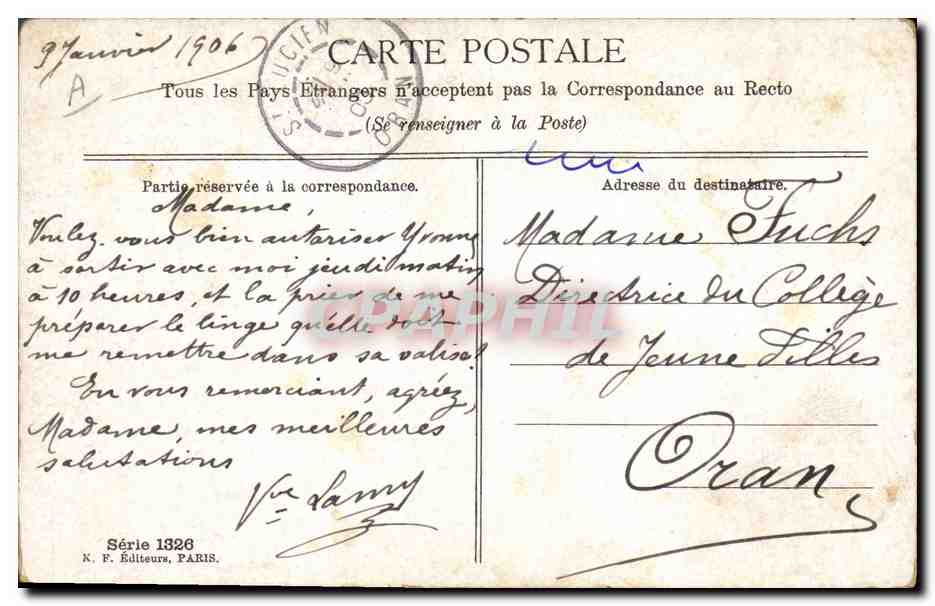 9 Janvier 1906
A
CARTE POSTALE
Tous les Pays Etrangers n'acceptent pas la Correspondance au Recto
(Se renseigner à la Poste)
ST LUCIEN
ORAN
Partie réservée à la correspondance.
Madame,
Voulez-vous bien autoriser Yvonne
à sortir avec moi jeudi matin
à 10 heures, et la prier de me
préparer le linge qu'elle doit
me remettre dans sa valise!
En vous remerciant, agréez,
Madame, mes meilleures
salutations
Vve Lamy
Série 1326
K. F. Éditeurs, PARIS.
Adresse du destinataire.
Madame Fuchs
Directrice du Collège
de Jeune Filles
Oran
CPAPHIL